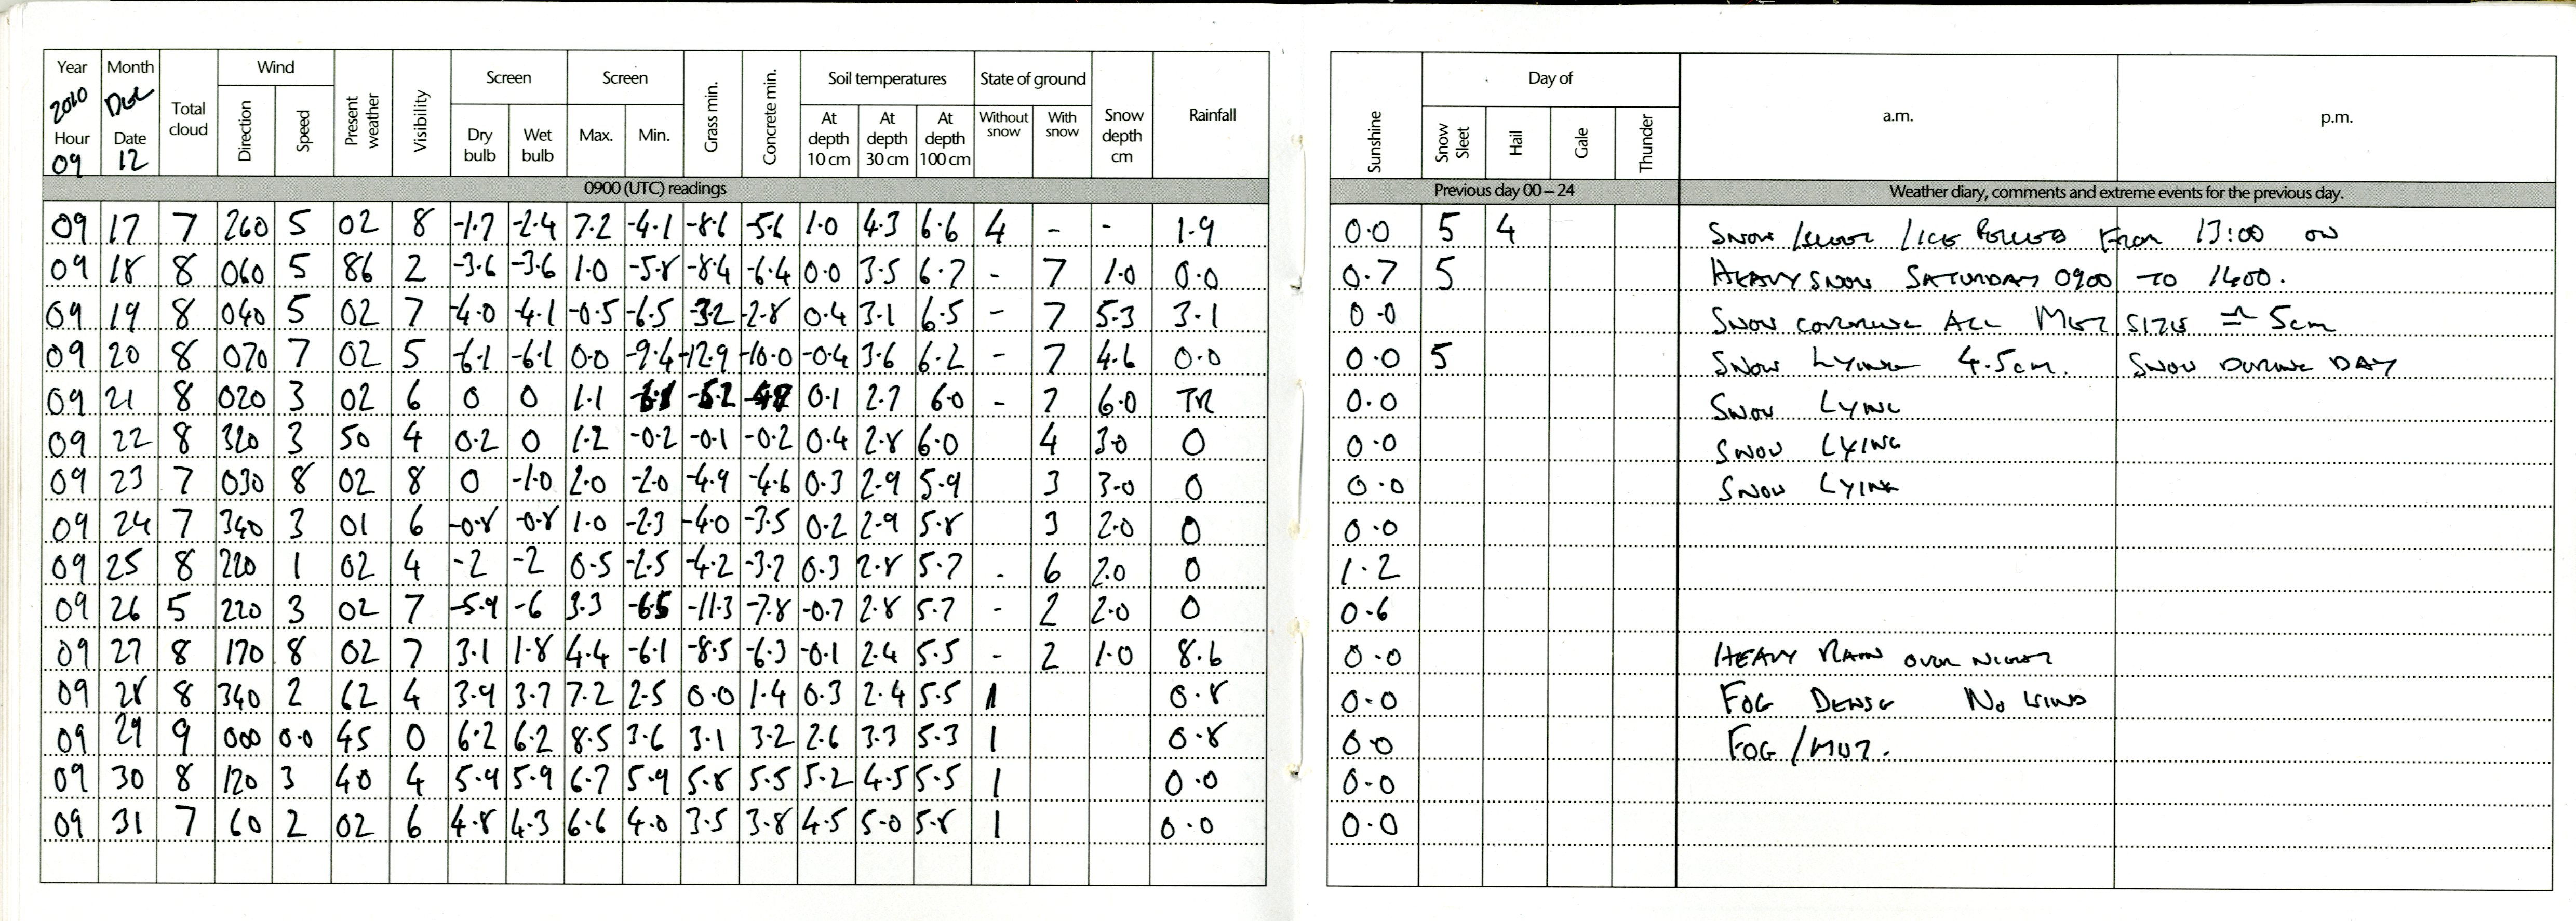 Year Month Wind Screen Screen Soil temperatures State of ground
2010 Dec Total cloud Direction Speed Present weather Visibility Dry bulb Wet bulb Max. Min. Grass min. Concrete min. At depth 10 cm At depth 30 cm At depth 100 cm Without snow With snow Snow depth cm Rainfall
Hour Date
09 12
0900 (UTC) readings
09 17 7 260 5 02 8 -1.7 -2.4 7.2 -4.1 -8.6 -5.6 1.0 4.3 6.6 4 - - 1.9
09 18 8 060 5 86 2 -3.6 -3.6 1.0 -5.8 -8.4 -6.4 0.0 3.5 6.7 - 7 1.0 0.0
09 19 8 040 5 02 7 -4.0 -4.1 -0.5 -6.5 -3.2 -2.8 0.4 3.1 6.5 - 7 5.3 3.1
09 20 8 070 7 02 5 -6.1 -6.1 0.0 -9.4 -12.9 -10.0 -0.4 3.6 6.2 - 7 4.6 0.0
09 21 8 020 3 02 6 0 0 1.1 -5.2 0.1 2.7 6.0 - 7 6.0 TR
09 22 8 320 3 50 4 0.2 0 1.2 -0.2 -0.1 -0.2 0.4 2.8 6.0 4 3.0 0
09 23 7 030 8 02 8 0 -1.0 2.0 -2.0 -4.9 -4.6 0.3 2.9 5.9 3 3.0 0
09 24 7 340 3 01 6 -0.8 -0.8 1.0 -2.3 -4.0 -3.5 0.2 2.9 5.8 3 2.0 0
09 25 8 220 1 02 4 -2 -2 0.5 -2.5 -4.2 -3.7 0.3 2.8 5.7 - 6 2.0 0
09 26 5 220 3 02 7 -5.9 -6 3.3 -6.5 -11.3 -7.8 -0.7 2.8 5.7 - 2 2.0 0
09 27 8 170 8 02 7 3.1 1.8 4.4 -6.1 -8.5 -6.3 -0.1 2.4 5.5 - 2 1.0 8.6
09 28 8 340 2 62 4 3.9 3.7 7.2 2.5 0.0 1.4 0.3 2.4 5.5 1 0.8
09 29 9 000 0.0 45 0 6.2 6.2 8.5 3.6 3.1 3.2 2.6 3.3 5.3 1 0.8
09 30 8 120 3 40 4 5.9 5.9 6.7 5.9 5.8 5.5 5.2 4.5 5.5 1 0.0
09 31 7 60 2 02 6 4.8 4.3 6.6 4.0 3.5 3.8 4.5 5.0 5.8 1 0.0
Sunshine Day of a.m. p.m.
Snow Sleet Hail Gale Thunder
Previous day 00 – 24 Weather diary, comments and extreme events for the previous day.
0.0 5 4 SNOW / SLEET / ICE PELLETS FROM 13:00 ON
0.7 5 HEAVY SNOW SATURDAY 0900 TO 1400.
0.0 SNOW COVERING ALL MET SITE = 5cm
0.0 5 SNOW LYING 4.5cm. SNOW DURING DAY
0.0 SNOW LYING
0.0 SNOW LYING
0.0 SNOW LYING
0.0
1.2
0.6
0.0 HEAVY RAIN OVER NIGHT
0.0 FOG DENSE No WIND
0.0 FOG /
0.0
0.0